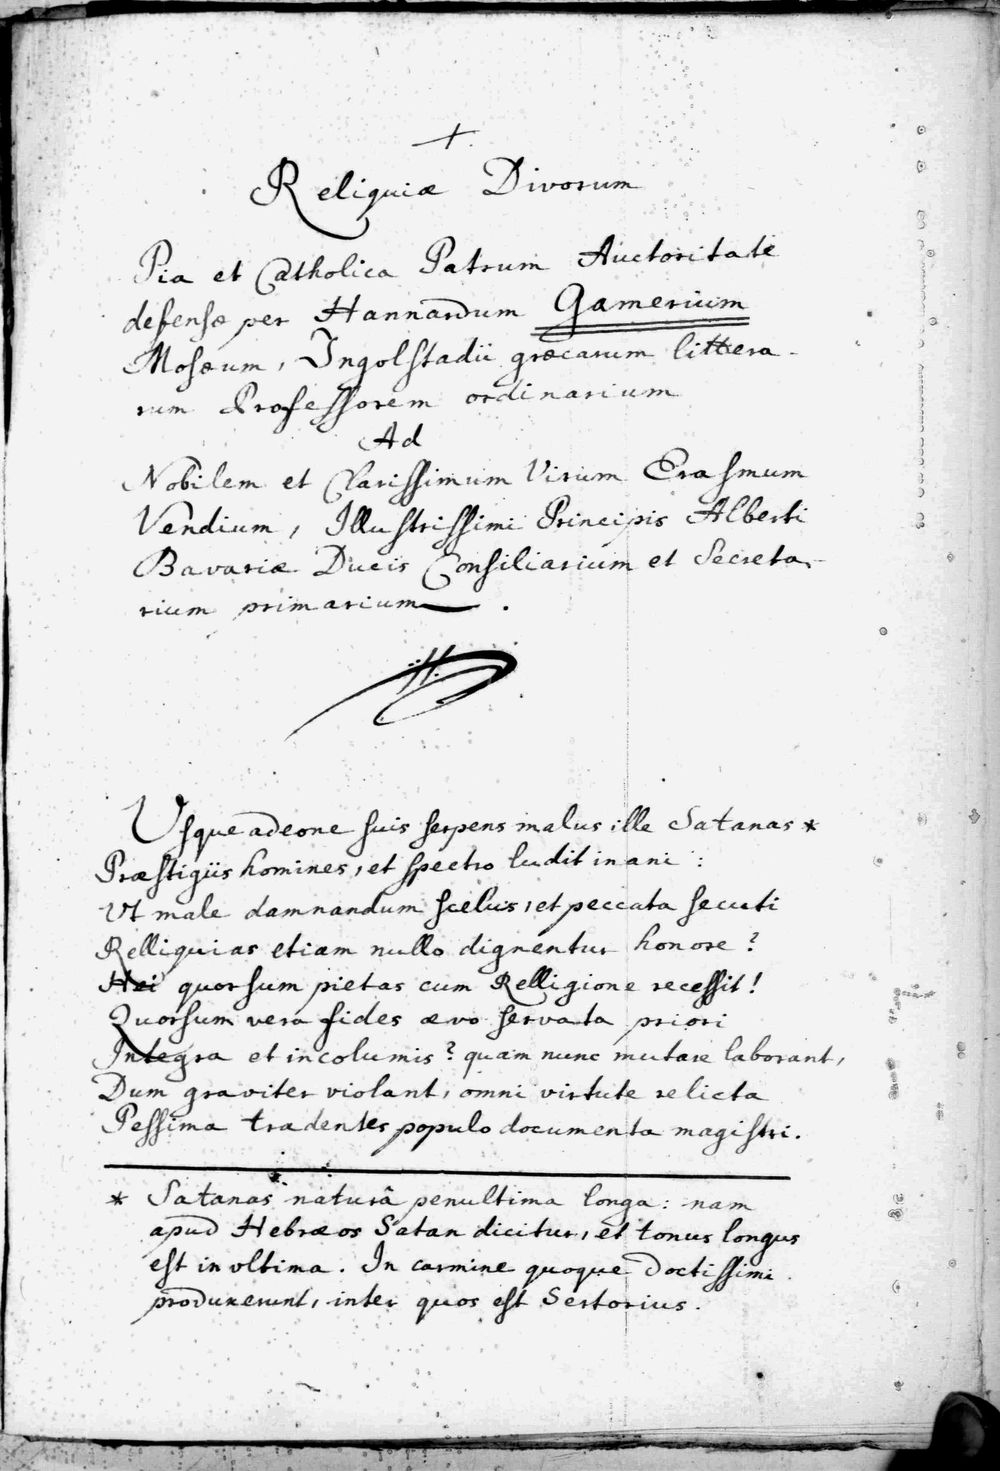 +
Reliquiæ Divorum
Pia et Catholica Patrum Auctoritate
defensæ per Hannardum Gamerium
Mosæum, Ingolstadii græcarum littera-
rum Professorem ordinarium
Ad
Nobilem et Clarissimum Virum Erasmum
Vendium, Illustrissimi Principis Alberti
Bavariæ Ducis Consiliarium et Secreta-
rium primarium.
Usque adeone suis serpens malus ille Satanas *
Præstigiis homines, et spectro ludit inani:
Ut male damnandum scelus, et peccata secuti
Relliquias etiam nullo dignentur honore?
Hei quorsum pietas cum Relligione recessit!
Quorsum vera fides ævo servata priori
Integra et incolumis? quam nunc mutare laborant,
Dum graviter violant, omni virtute relicta
Pessima tradentes populo documenta magistri.
* Satanas naturâ penultima longa: nam
apud Hebræos Satan dicitur, et tonus longus
est in ultima. In carmine quoque Doctissimi
produxerunt, inter quos est Sertorius.